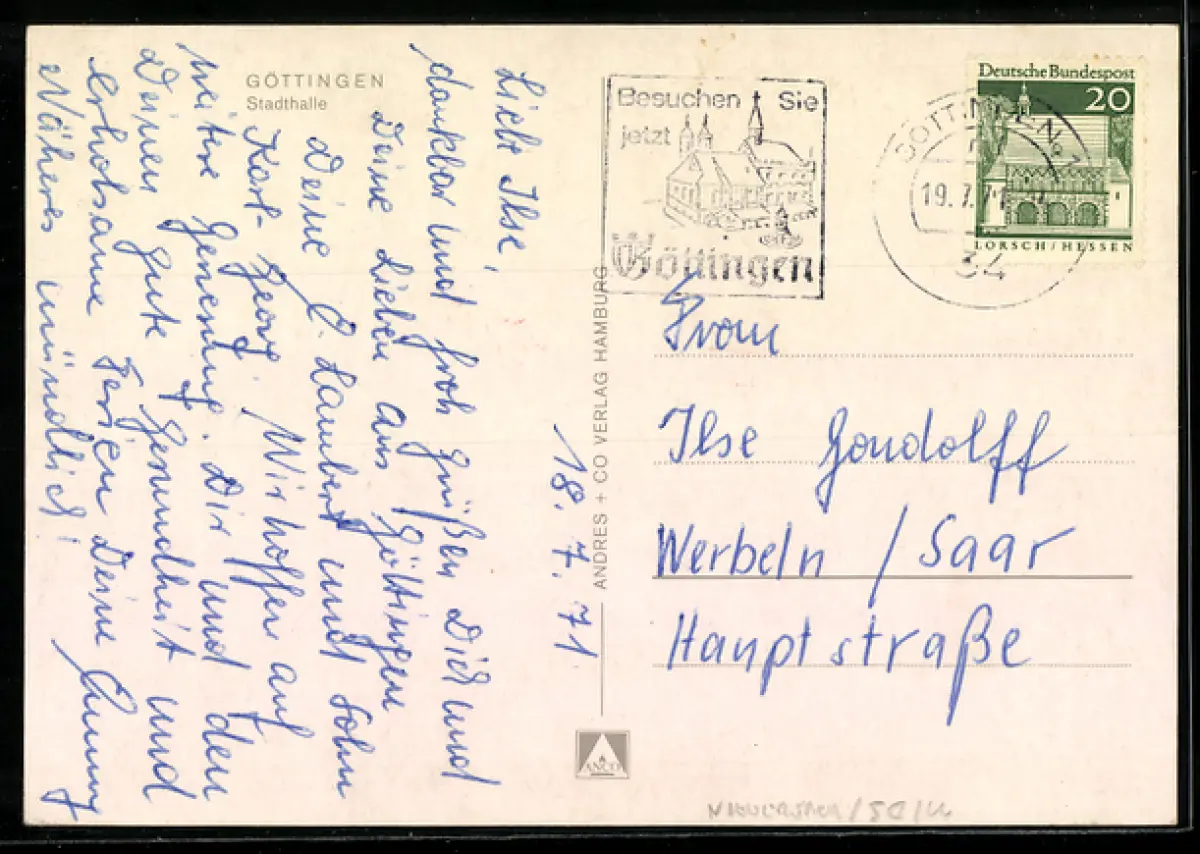 GÖTTINGEN
Stadthalle
18. 7. 71
Liebe Ilse,
dankbar und froh grüßen Dich und
Deine Lieben aus Göttingen
Deine E. Lambert und Sohn
Karl-Georg. Wir hoffen auf
weitere Genesung. Dir und den
Deinen gute Gesundheit und
erholsame Ferien Deine
Näheres mündlich!
ANDRES + CO VERLAG HAMBURG
ANCO
Besuchen Sie
jetzt
Göttingen
GÖTTINGEN 1
19.7.71
34
Deutsche Bundespost
20
LORSCH/HESSEN
Frau
Ilse Gondolff
Werbeln / Saar
Hauptstraße